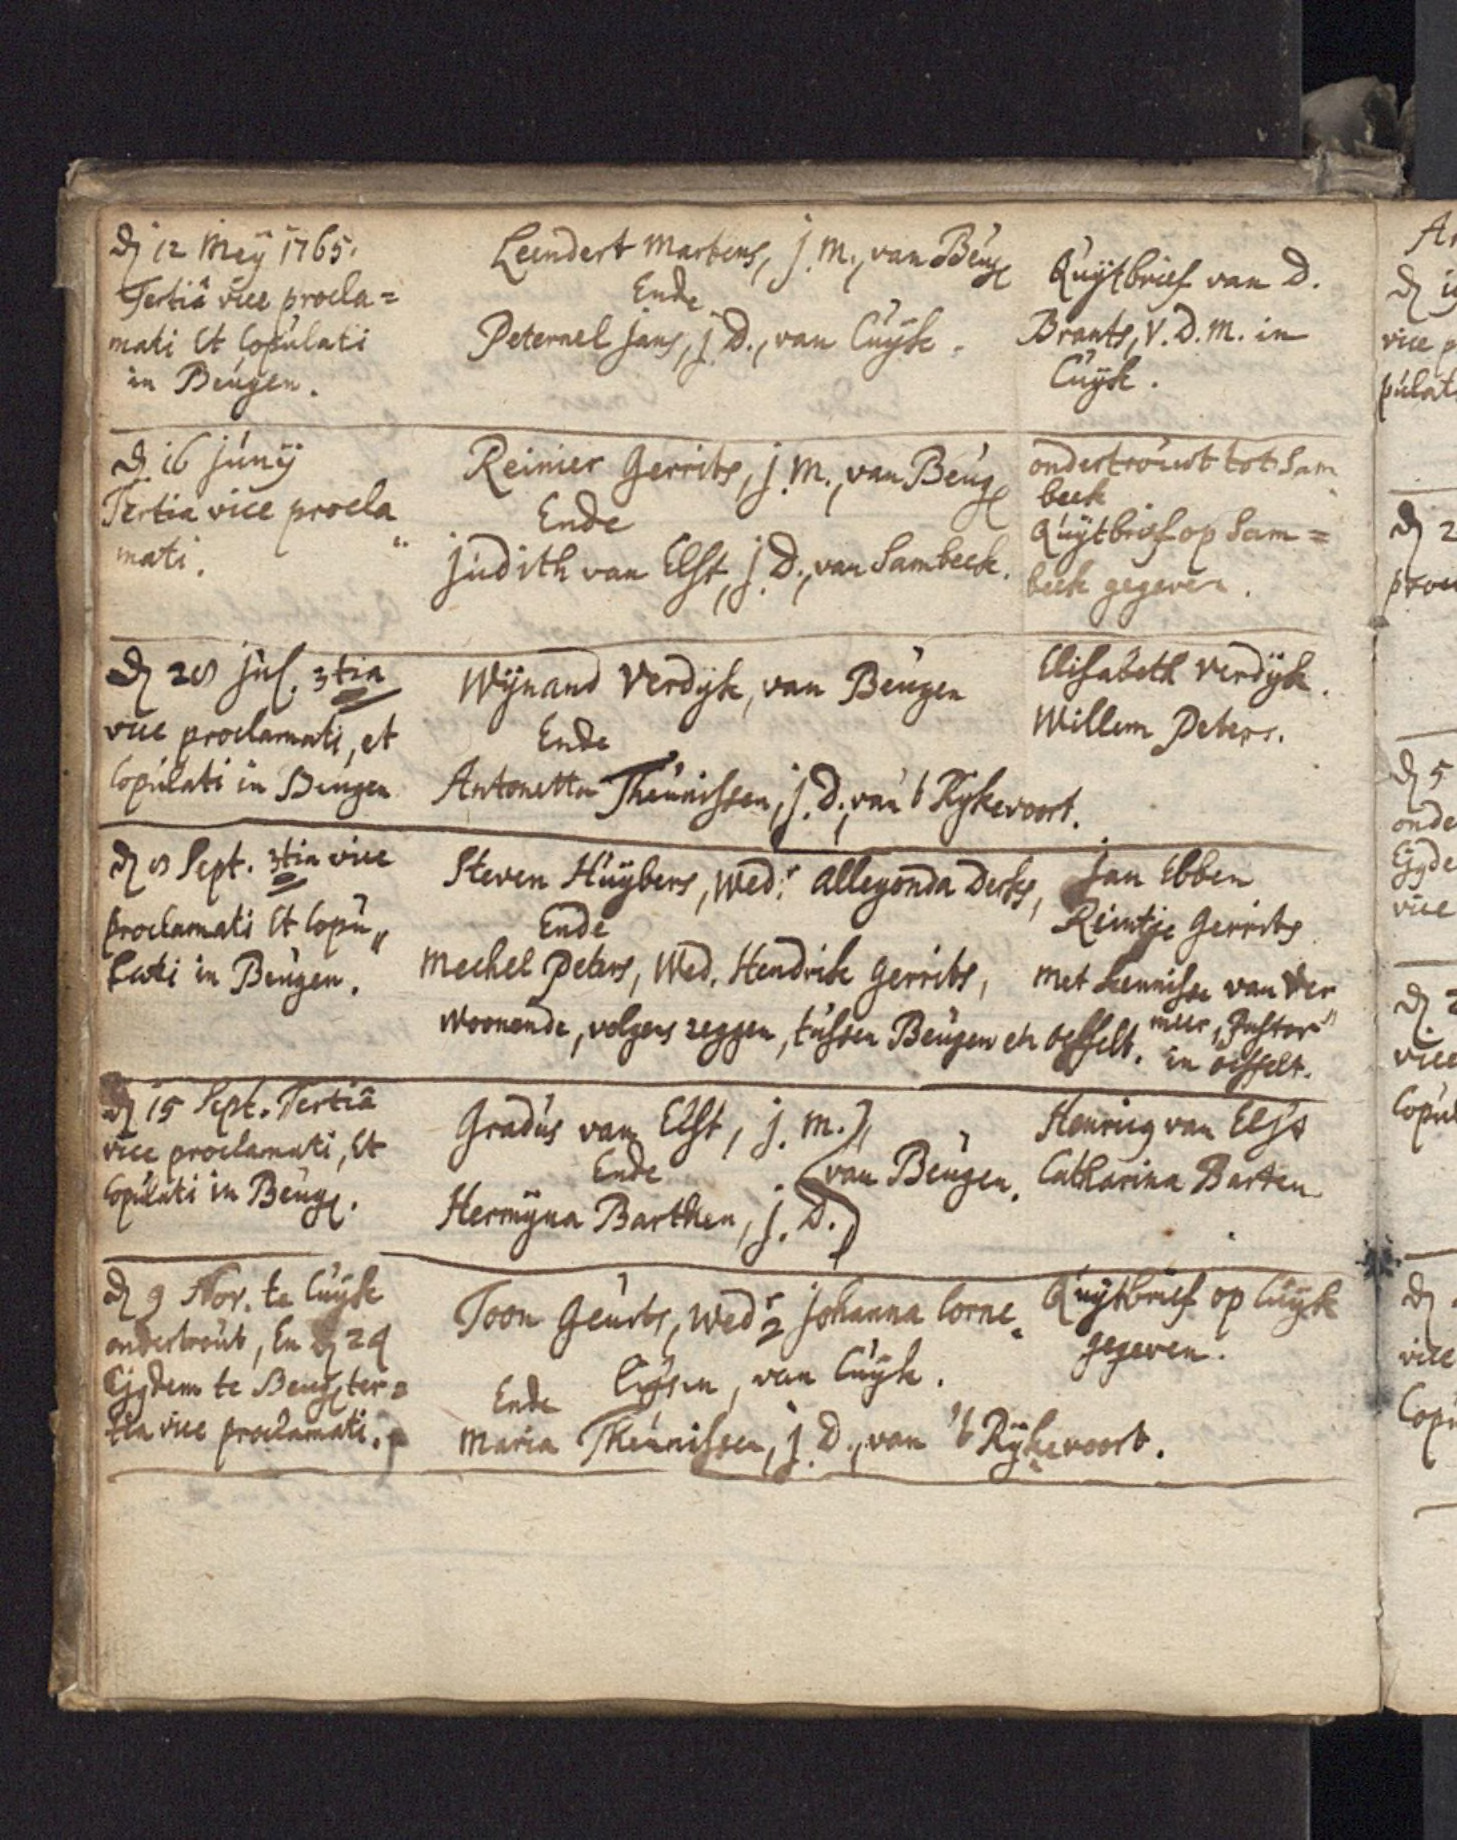 dj 12 Meij 1765.
Tertiâ vice procla=
mati Et Copulati
in Beugen.
Leendert Martens, j. M., van Beug
Ende
Peternel Jans, j. D., van Cuijk.
Quijtbrief van D.
Brants, V. D. M. in
Cuijk.
dj 16 junij
Tertia vice procla
mati.
Reinier Gerrits, j. M., van Beug
Ende
judith van Elst, j. D., van Sambeek.
ondertrouwt tot Sam
beek
Quijtbrief op Sam=
beek gegeven.
dj 28 jul. 3tia
vice proclamati, et
Copulati in Beugen
Wijnand Verdijk, van Beugen
Ende
Antonetta Theunissen, j. D., van 't Rijkevoort.
Elisabeth Verdijk.
Willem Peters.
dj 8 Sept. 3tia vice
proclamati Et Copu„
lati in Beugen.
Steven Huijbers, Wedr. Allegonda Derks,
Ende
Mechel Peters, Wed. Hendrik Gerrits,
Woonende, volgens zeggen, tussen Beugen en oeffelt.
Jan Ebben
Reintje Gerrits
Met kennisse van Ver
meer, Pastor
in oeffelt.
dj 15 Sept. Tertiâ
vice proclamati, Et
Copulati in Beug.
Gradus van Elst, j. M.
Ende
van Beugen.
Hermijna Barthen, j. D.
Henricq van Elst
Catharina Barten
dj 9 Nov. te Cuijk
ondertrout, En dj 24
Ejgdem te Beug ter=
tia vice proclamati.
Toon Geurts, Wedr Johanna Corne=
lijsen, van Cuijk.
Ende
Maria Theunissen, j. D., van 't Rijkevoort.
Quijtbrief op Cuijk
gegeven.